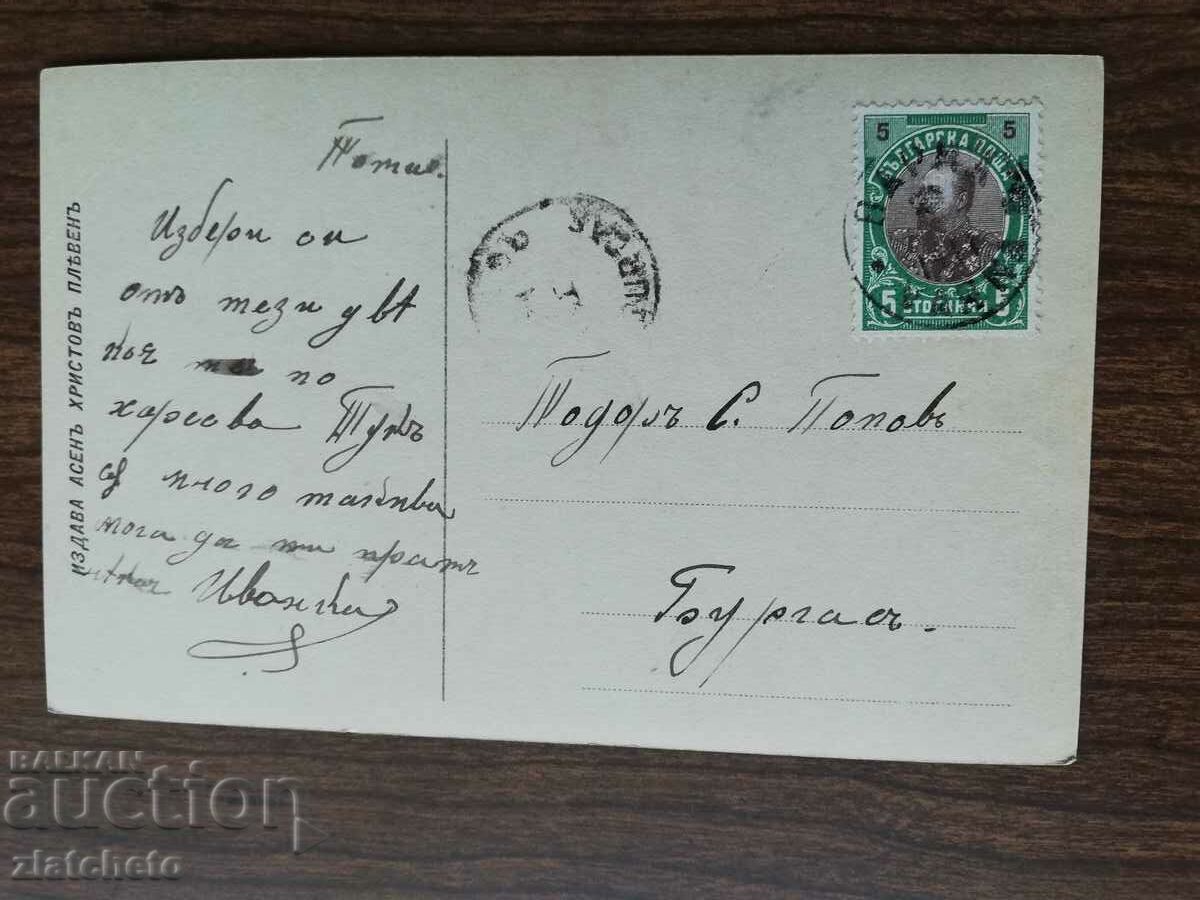 ИЗДАВА АСЕНЪ ХРИСТОВЪ ПЛѢВЕНЪ
Избери си
отъ тези двѣ
коя по
харесва Тукъ
много такива
мога да ти пратѫ
Иванка
БУРГАС
5 5
БЪЛГАРСКА ПОЩА
5 СТОТИНКИ 5
Тодоръ С. Поповъ
Бургасъ.
BALKAN
auction
zlatcheto